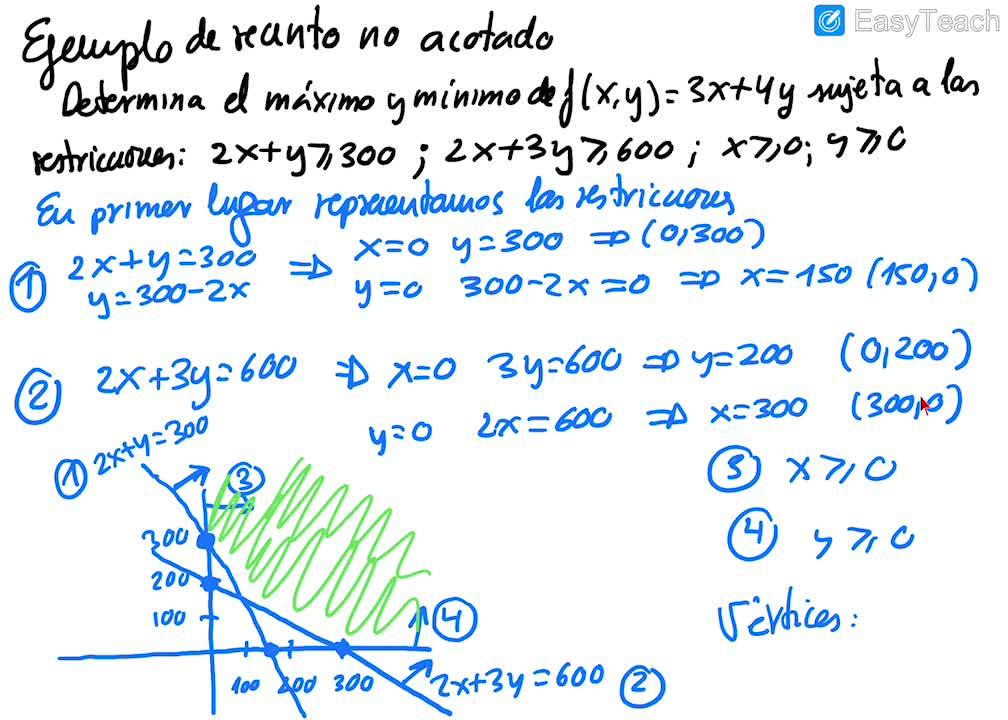 EasyTeach
Ejemplo de recinto no acotado
Determina el máximo y mínimo de f(x,y)=3x+4y sujeta a las
restricciones: 2x+y≥300 ; 2x+3y≥600 ; x≥0; y≥0
En primer lugar representamos las restricciones
① 2x+y=300 ⇒ x=0 y=300 ⇒ (0,300)
y=300-2x y=0 300-2x=0 ⇒ x=150 (150,0)
② 2x+3y=600 ⇒ x=0 3y=600 ⇒ y=200 (0,200)
y=0 2x=600 ⇒ x=300 (300,0)
① 2x+y=300
③ x≥0
③
④ y≥0
300
200
100
④
Vértices:
100 200 300
2x+3y=600 ②